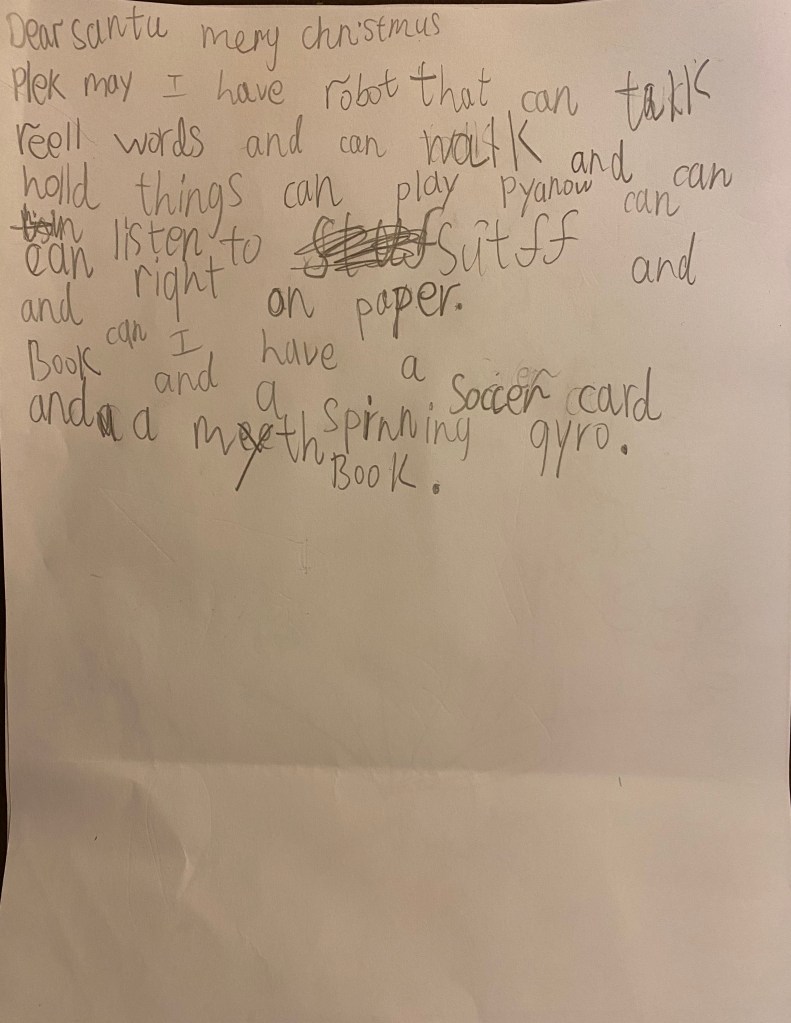 Dear santu mery christmus
Plek may I have robot that can talk
reell words and can walk and can
holld things can play pyanow can
can listen to sutff and
and right on paper.
Book can I have a soccer card
and a spinning gyro.
and a meth Book.